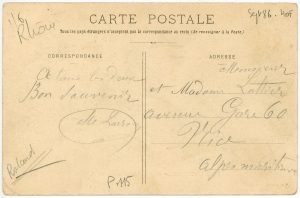 Rhône
Sept 86.
CARTE POSTALE
Tous les pays étrangers n'acceptent pas la correspondance au recto (Se renseigner à la Poste)
CORRESPONDANCE
ADRESSE
Monsieur
et Madame
avenue Gare 60
Nice
Alpes maritimes
A tous les deux
Bon souvenir
Roland
P.115